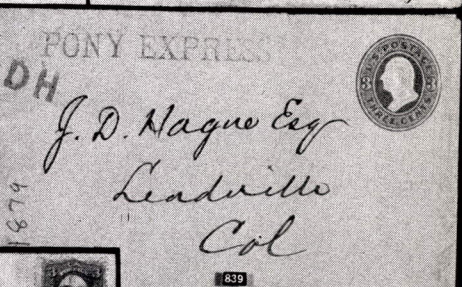 PONY EXPRESS
DH
U.S. POSTAGE
THREE CENTS
J. D. Hague Esq
Leadville
Col
1879
839